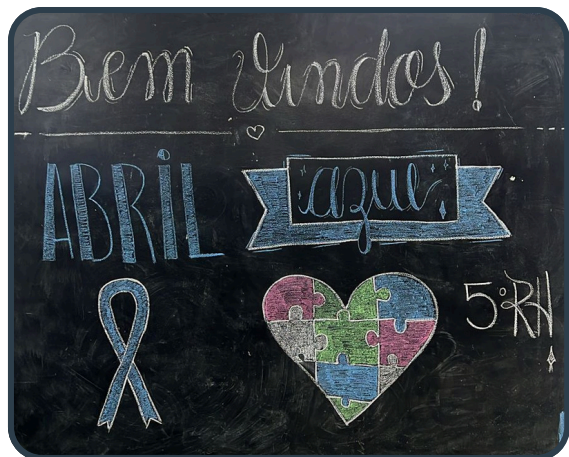 Bem Vindos!
ABRIL
azul
5° RH